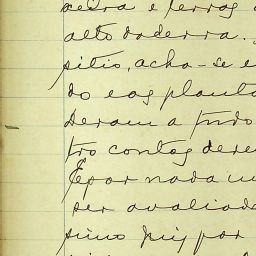 cedra e ferros
alto da serra.
sitio, acha-se e
do e as planta
deram a tudo
tro contos de re
E por nada m
ser avaliado
simo juiz por